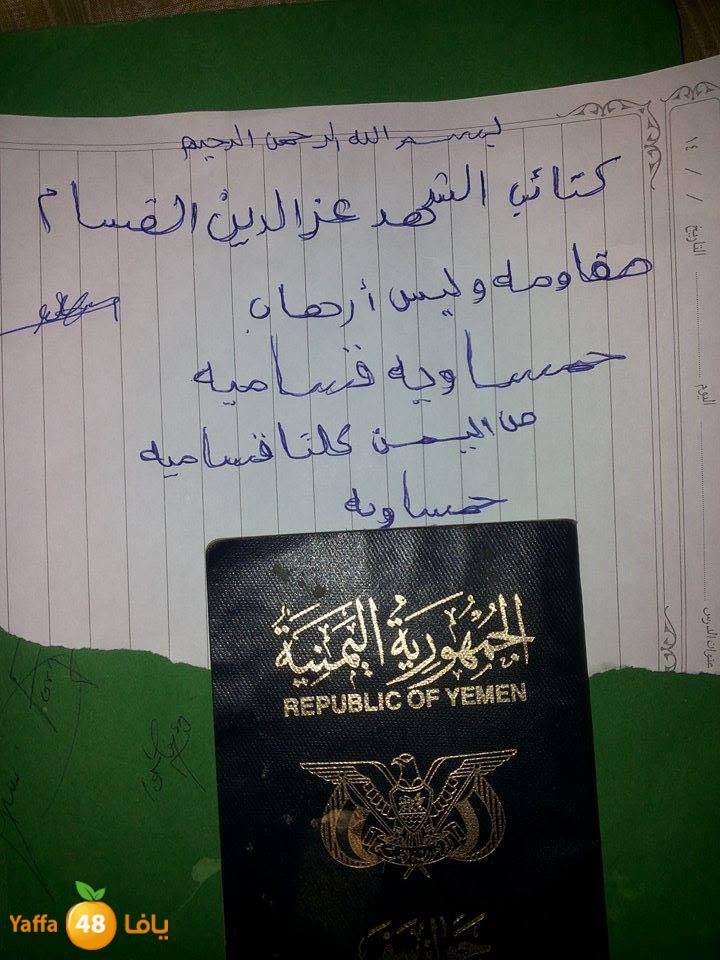 بسم الله الرحمن الرحيم
كتائب الشهد عز الدين القسام
مقاومه وليس أرهاب
حمساويه قساميه
من اليمن كلنا قساميه
حمساويه
١٤ / / التاريخ
اليوم
عنوان الدرس
الجمهورية اليمنية
REPUBLIC OF YEMEN
جواز سفر
Yaffa 48 يافا